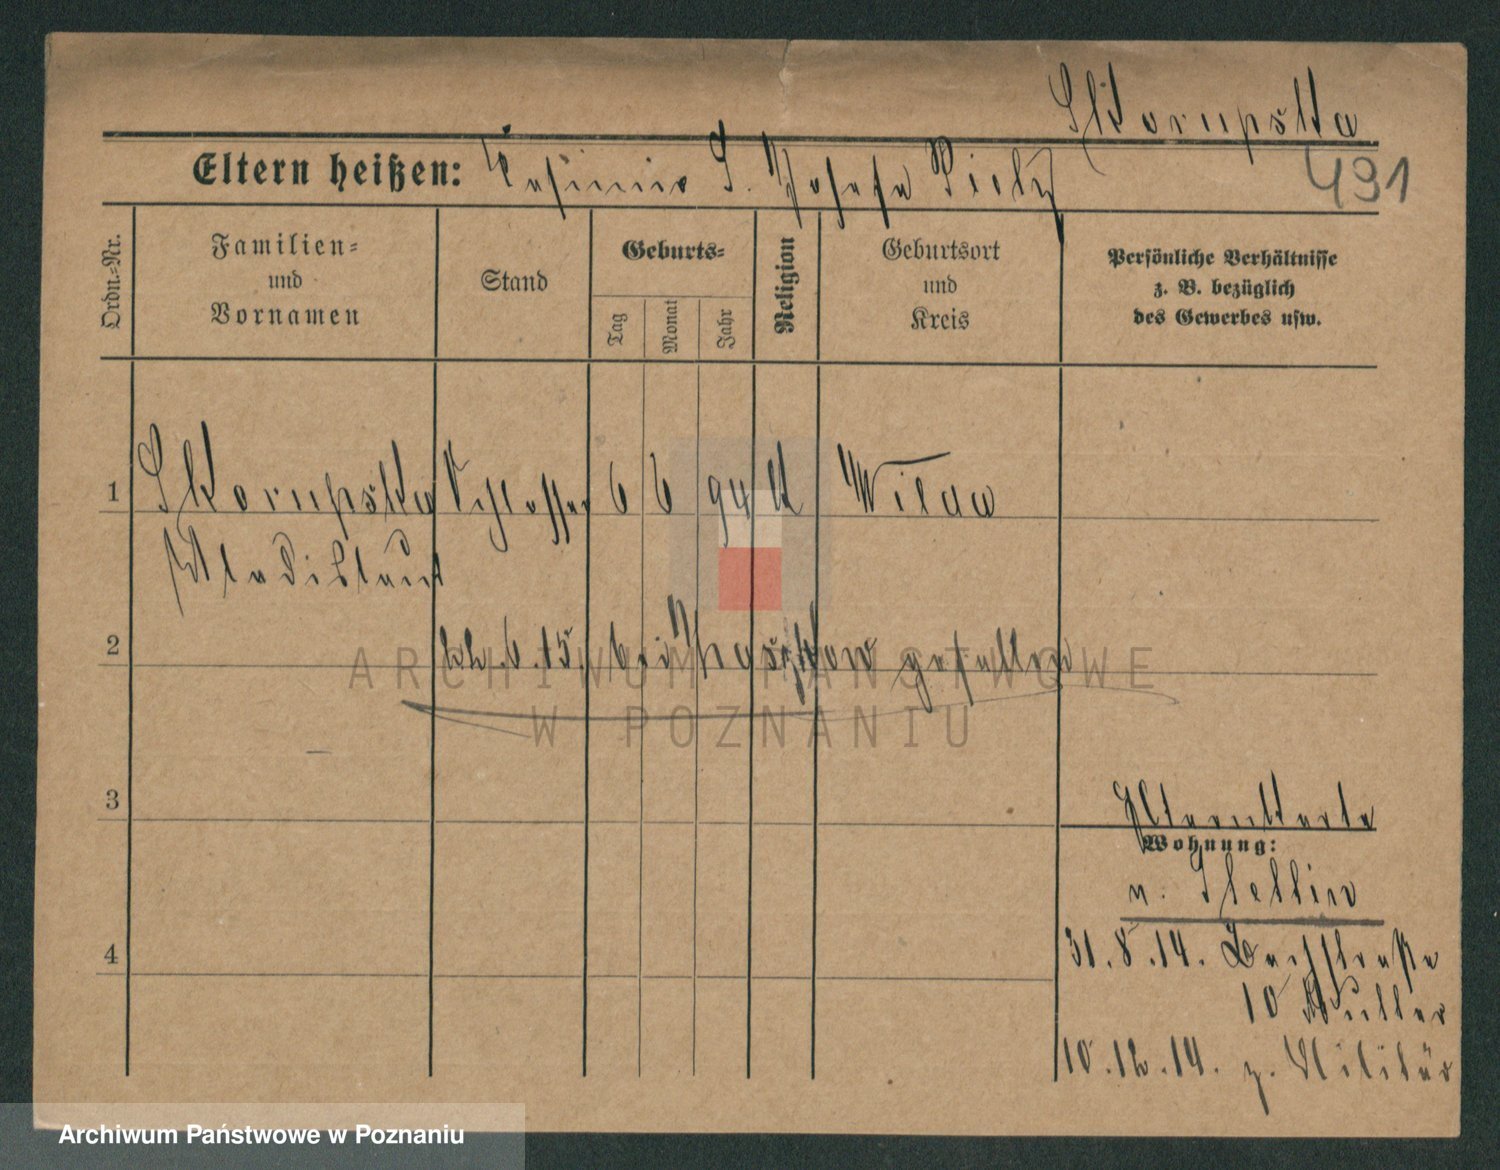 Skorupska
491
Eltern heißen: Casimir S. Josefa Pielz
Ordn.-Nr.
Familien-
und
Vornamen
Stand
Geburts-
Tag
Monat
Jahr
Religion
Geburtsort
und
Kreis
Persönliche Verhältnisse
z. B. bezüglich
des Gewerbes usw.
1 Skorupska Schlosser 6 6 94 k Wilda
Wladislaus
2 22.6.15. bei gefallen
3
Elternkarte
Wohnung:
n. Stettin
4
31.8.14. Bachstraße
10 Mutter
10.12.14. z. Militär
ARCHIWUM PAŃSTWOWE
W POZNANIU
Archiwum Państwowe w Poznaniu